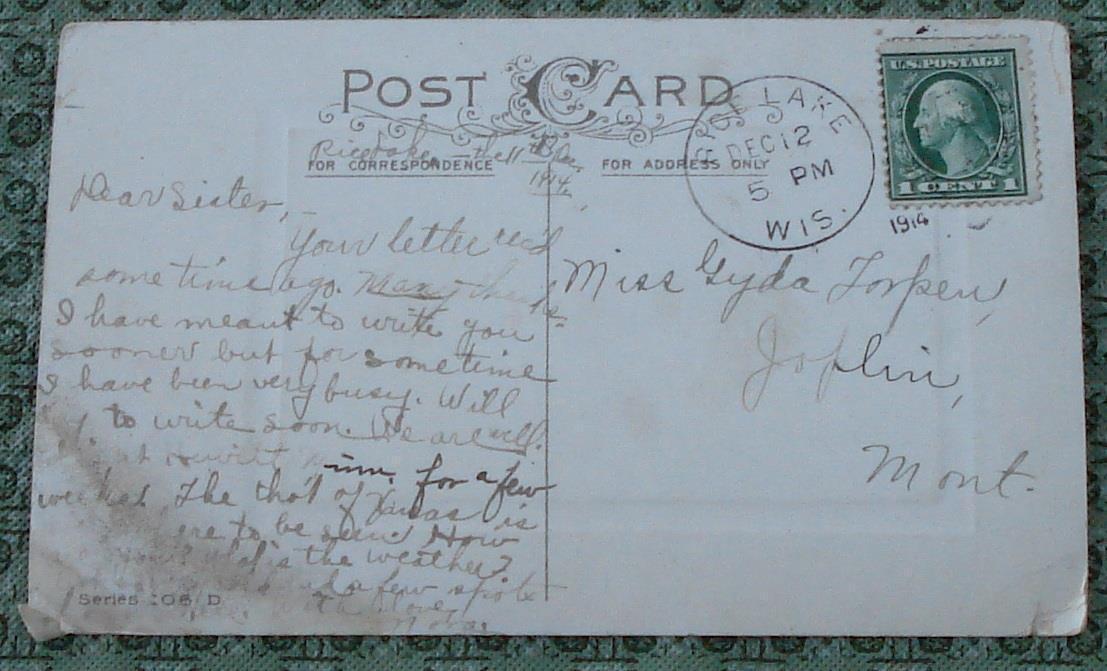 POST CARD
FOR CORRESPONDENCE
FOR ADDRESS ONLY
RICE LAKE
DEC 12
5 PM
WIS.
U.S. POSTAGE
1 CENT 1
1914
Rice Lake the 11
1914
Dear Sister,
Your letter rec'd
sometime ago. Many thanks.
I have meant to write you
sooner but for sometime
I have been very busy. Will
try to write soon. We are well.
for a few
weeks. The tho't of Xmas is
to be seen. How
is the weather?
a few spots
With love,
Miss Gyda Torpen,
Joplin,
Mont.
Series 106 D